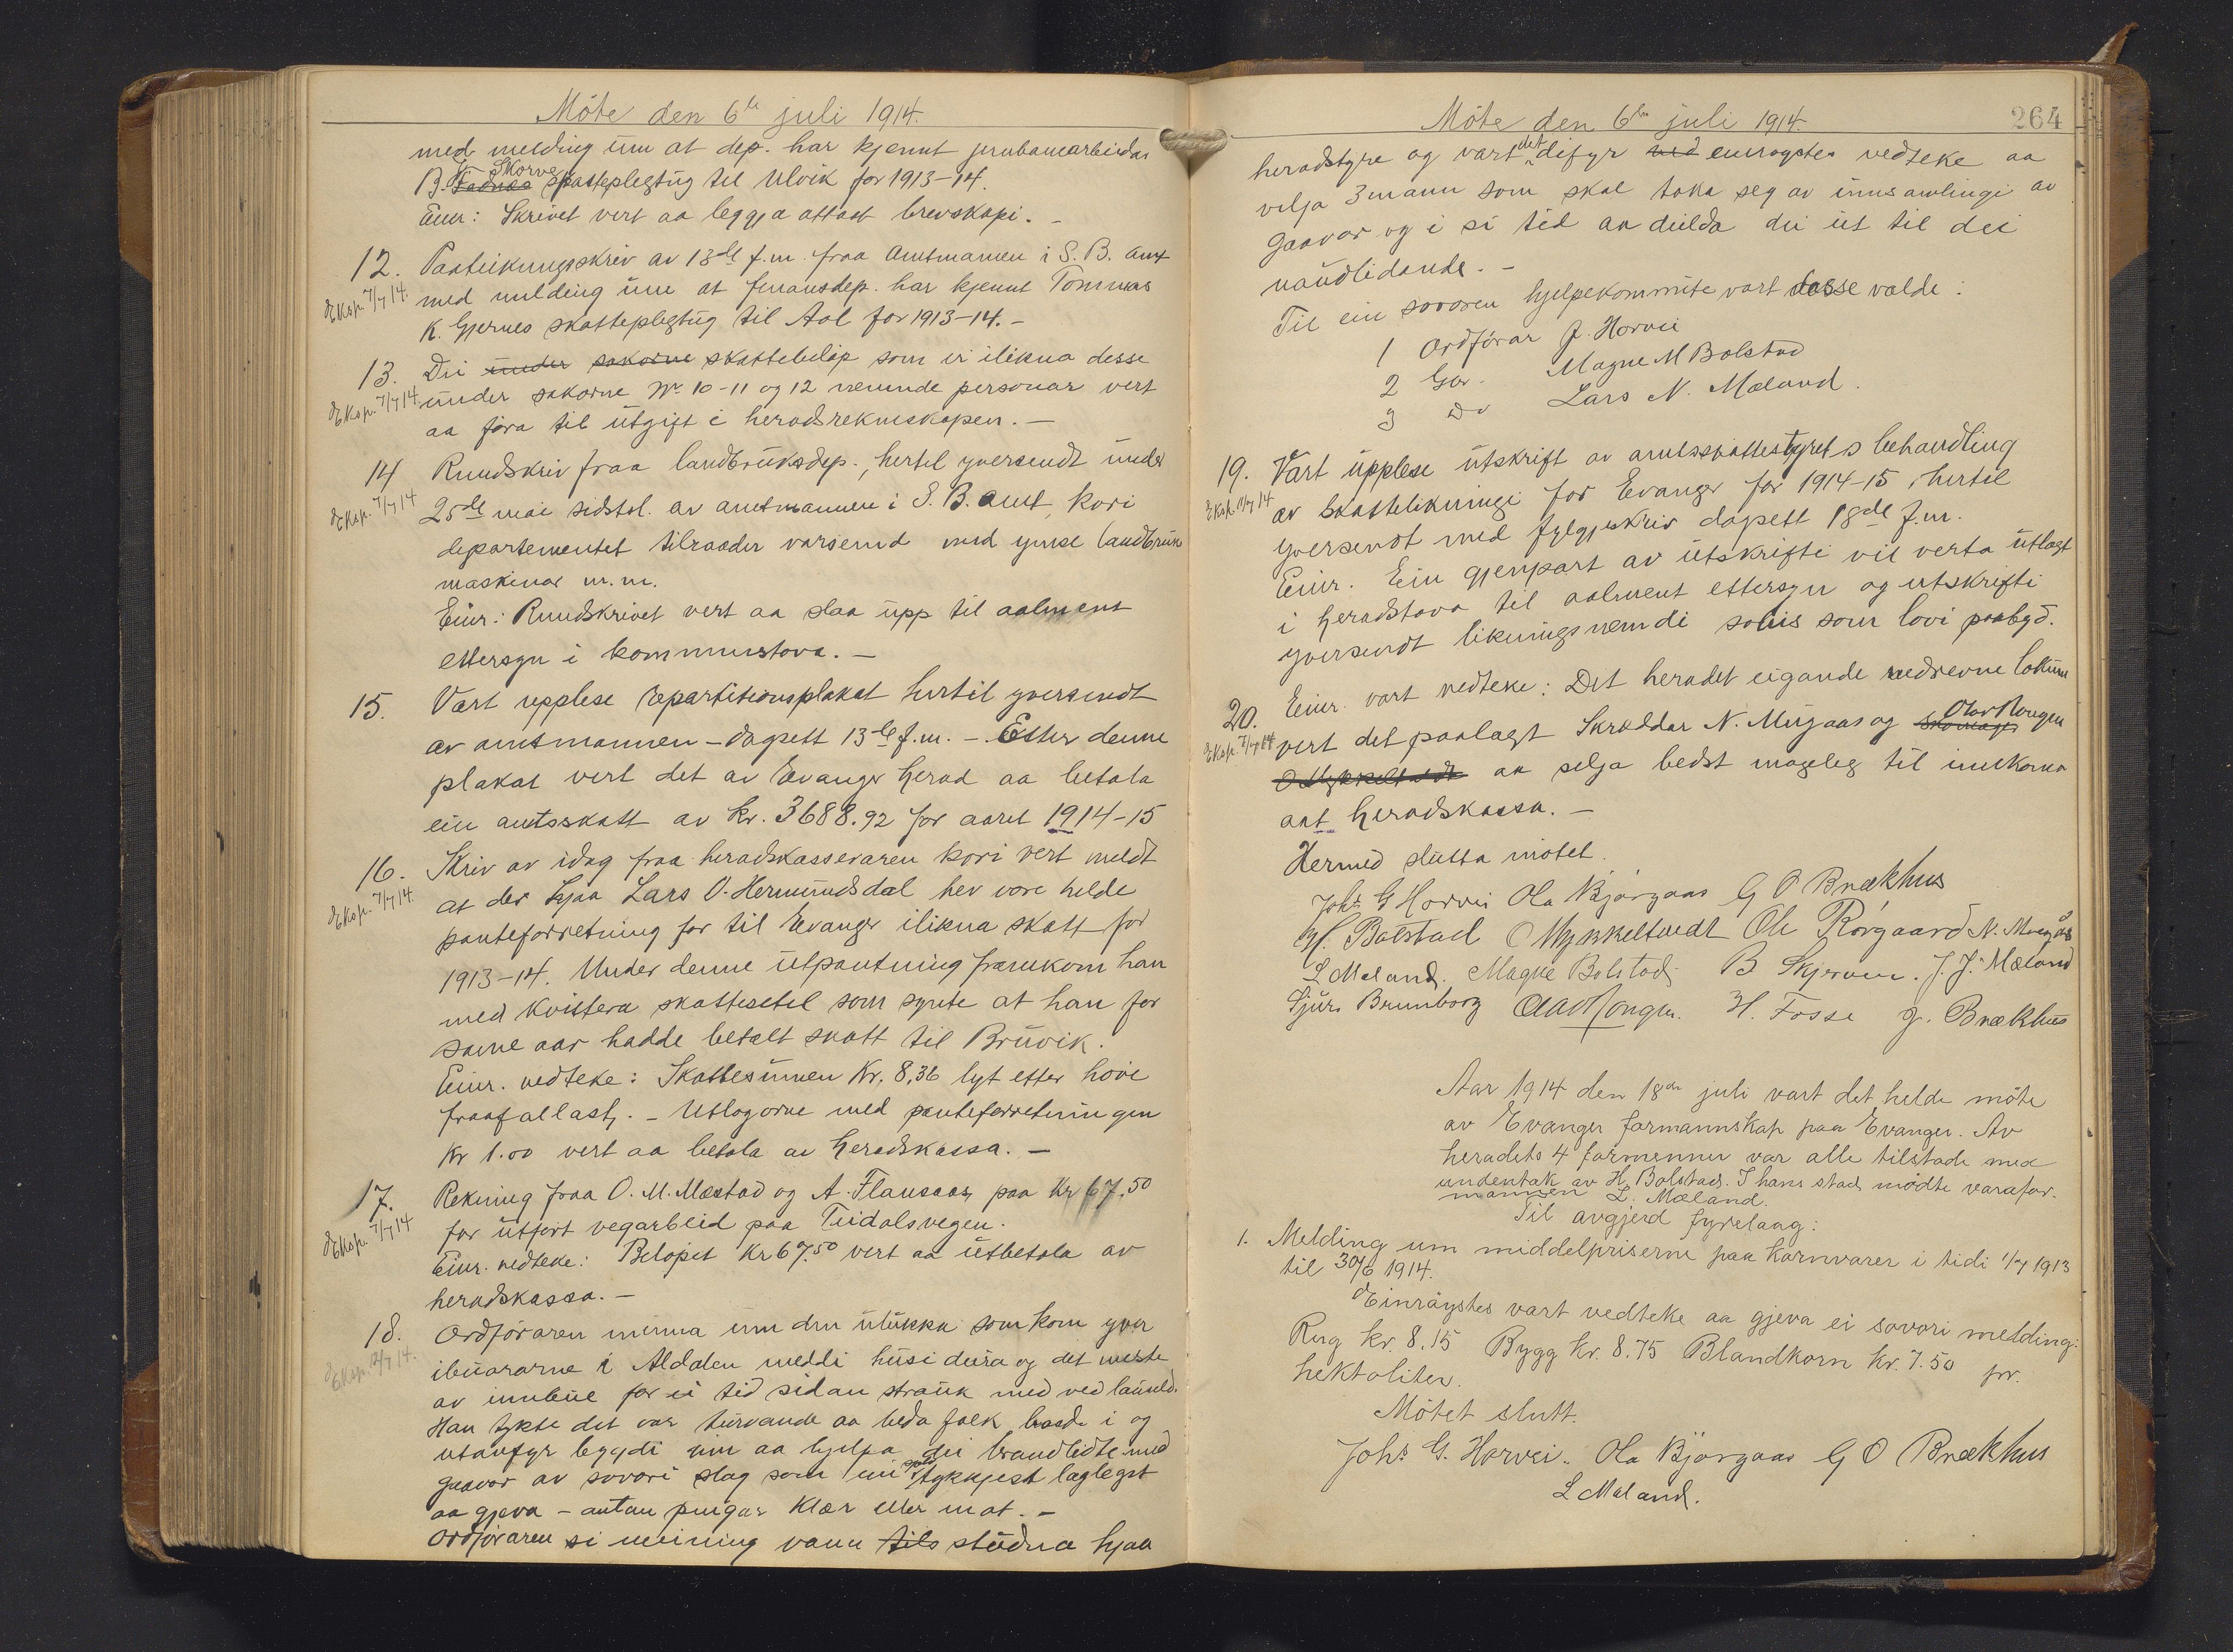 Möte den 6te juli 1914.
med melding um at dep. har kjennt jernbanearbeidar
B. Fadnes Skorve skatteplegtug til Ulvik for 1913-14.
Einr: Skrivet vert aa leggja attaat brevskapi. -
12. Paateikningsskriv av 18de f.m. fraa Amtmannen i S. B. amt
E Kop. 7/7 14. med melding um at finansdep. har kjennt Tommas
K. Gjernes skatteplegtug til Aal for 1913-14. -
13. Dei under sakorne skattebelöp som er ilikna desse
E Kop. 7/7 14 under sakorne No 10-11 og 12 nemnde personar vert
aa föra til utgift i heradsrekneskapen. -
14 Rundskriv fraa landbruksdep., hertil yversendt under
E Kop. 7/7 14 25de mai sidstl. av amtmannen i S. B. amt, kori
departementet tilraader varsemd med ymse landbruks
maskinar m.m.
Einr: Rundskrivet vert aa slaa upp til aalment
ettersyn i kommunstova. -
15. Vart upplese repartitionsplakat hertil yversendt
av amtmannen - dagsett 13de f.m. - Etter denne
plakat vert det av Evanger herad aa betala
ein amtsskatt av kr. 3688.92 for aaret 1914-15
16. Skriv av idag fraa heradskasseraren kori vert meldt
E Kop. 7/7 14. at der hjaa Lars O. Hermundsdal hev vore helde
panteforretning for til Evanger ilikna skatt for
1913-14. Under denne utpantning framkom han
med kvittera skattesetel som synte at han for
same aar hadde betalt skatt til Bruvik.
Einr. vedteke: Skattesumen Kr. 8,36 lyt etter höve
fraafallast. - Utlogorne med panteforretningen
Kr 1.00 vert aa betala av heradskassa. -
17. Rekning fraa O. M. Mæstad og A. Flausaas paa Kr 67,50
E Kop. 7/7 14 for utfört vegarbeid paa Teidalsvegen.
Einr. vedteke: Belöpet Kr 67.50 vert aa utbetala av
heradskassa. -
18. Ordföraren minna um den ulukka som kom yver
E Kop. 12/7 14. ibuararne i Aldalen meddi husi deira og det meste
av innbue for ei tid sidan strauk med ved lauseld.
Han tykte det var turvande aa beda folk baade i og
utanfyr bygdi um aa hjelpa dei brandlidte med
gaavor av sovori slag som ein sjölv tykkjest laglegst
aa gjeva - antan pengar klær eller mat. -
Ordföraren si meining vann tils studna hjaa
Möte den 6te juli 1914. 264
heradstyre og vart det defyr ved einrøystes vedteke aa
velja 3 mann som skal taka seg av innsamlingi av
gaavor og i si tid aa deilda dei ut til dei
naudlidande. -
Til ein sovoren hjelpekommite vart desse valde:
1 Ordförar J. Horvei
2 Gbr. Magne M Bolstad
3 Do Lars N. Mæland.
19. Vart upplese utskrift av amtsskattestyrets behandling
E Kop. 11/7 14 av skattelikningi for Evanger for 1914-15, hertil
yversendt med fylgjeskriv dagsett 18de f.m.
Einr. Ein gjenpart av utskrifti vil verta utlagt
i heradstova til aalment ettersyn og utskrifti
yversendt likningsnemdi soleis som lovi paabyd.
20. Einr. vart vedteke: Det heradet eigande nedrevne lokum
E Kop. 7/7 14 vert det paalagt Skræddar N. Mugaas og Skomagr Olav Langen
O Mykkeltvedt aa selja bedst mogeleg til innkoma
aat heradskassa. -
Hermed slutta mötet.
Johs G Horvei Ola Bjørgaas G O Brækhus
H. Bolstad O Mykkeltvedt Ole Rørgaard N. Mugås
L Mæland. Magne Bolstad B Skjerven. J. J. Mæland
Sjur Brunborg Olav Langen. H. Fosse J. Brækhus
Aar 1914 den 18de juli vart det helde möte
av Evanger formannskap paa Evanger. Av
heradets 4 formenner var alle tilstade med
undentak av H. Bolstad. I hans stad mödte varafor-
mannen L. Mæland.
Til avgjerd fyrelaag:
1. Melding um middelpriserne paa kornvarer i tidi 1/7 1913
til 30/6 1914.
Einröystes vart vedteke aa gjeva ei sovori melding:
Rug kr. 8.15 Bygg kr. 8.75 Blandkorn kr. 7.50 pr.
hektoliter.
Mötet slutt.
Johs G. Horvei. Ola Bjørgaas G O Brækhus
L Mæland.